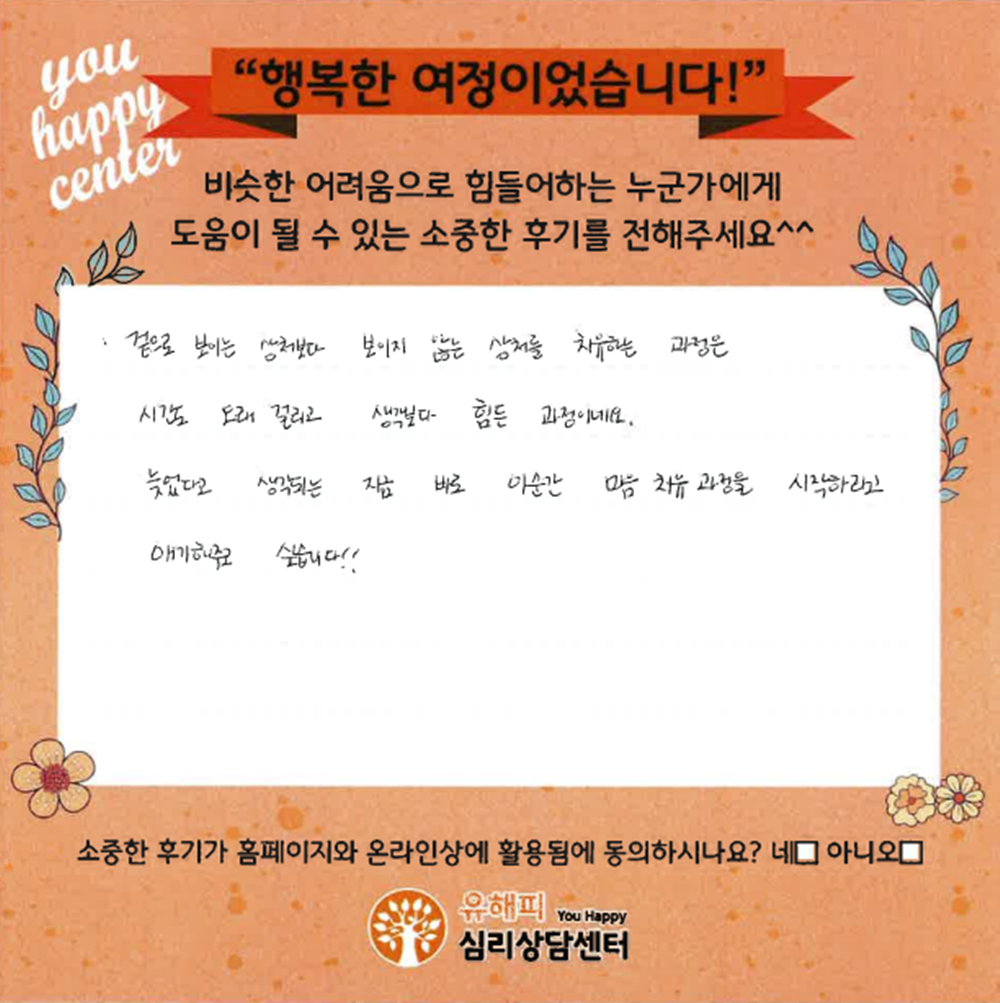 you
happy
center
“행복한 여정이었습니다!”
비슷한 어려움으로 힘들어하는 누군가에게
도움이 될 수 있는 소중한 후기를 전해주세요^^
· 겉으로 보이는 상처보다 보이지 않는 상처를 치유하는 과정은
시간도 오래 걸리고 생각보다 힘든 과정이네요.
늦었다고 생각되는 지금 바로 이순간 마음 치유 과정을 시작하라고
얘기해주고 싶습니다!!
소중한 후기가 홈페이지와 온라인상에 활용됨에 동의하시나요? 네□ 아니오□
유해피 You Happy
심리상담센터